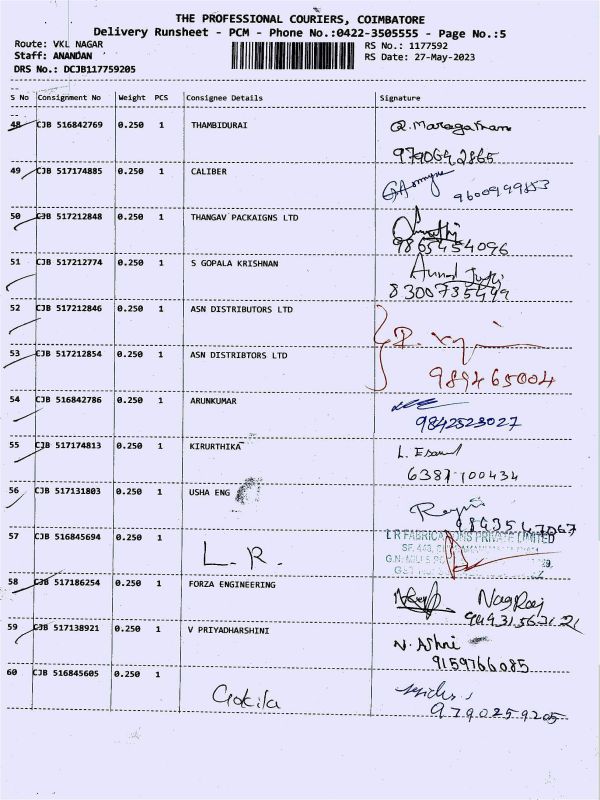 THE PROFESSIONAL COURIERS, COIMBATORE
Delivery Runsheet - PCM - Phone No.:0422-3505555 - Page No.:5
Route: VKL NAGAR RS No.: 1177592
Staff: ANANDAN RS Date: 27-May-2023
DRS No.: DCJB117759205
S No Consignment No Weight PCS Consignee Details Signature
48 CJB 516842769 0.250 1 THAMBIDURAI
9790642865
49 CJB 517174885 0.250 1 CALIBER
9600999853
50 CJB 517212848 0.250 1 THANGAV PACKAIGNS LTD
9865454096
51 CJB 517212774 0.250 1 S GOPALA KRISHNAN
8300735499
52 CJB 517212846 0.250 1 ASN DISTRIBUTORS LTD
53 CJB 517212854 0.250 1 ASN DISTRIBTORS LTD
989465004
54 CJB 516842786 0.250 1 ARUNKUMAR
9842523027
55 CJB 517174813 0.250 1 KIRURTHIKA
6387100434
56 CJB 517131803 0.250 1 USHA ENG
57 CJB 516845694 0.250 1 L.R. L R FABRICATIONS PRIVATE LIMITED
58 CJB 517186254 0.250 1 FORZA ENGINEERING
NagRaj
59 CJB 517138921 0.250 1 V PRIYADHARSHINI
9159766085
60 CJB 516845605 0.250 1 Gokila
9790259205